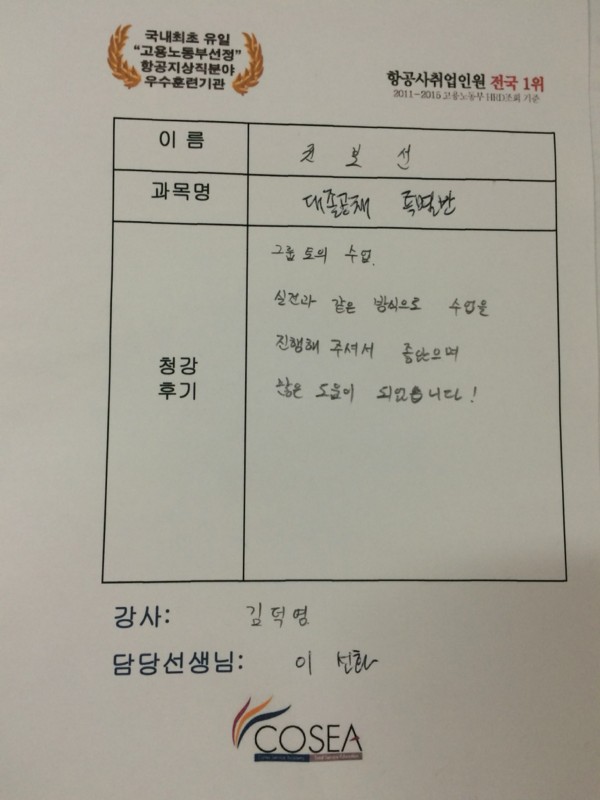 국내최초 유일
"고용노동부선정"
항공지상직분야
우수훈련기관
항공사취업인원 전국 1위
2011~2015 고용노동부 HRD조회 기준
이 름
보 선
과목명
대졸공채 특별반
청강
후기
그룹 토의 수업.
실전과 같은 방식으로 수업을
진행해 주셔서 좋았으며
많은 도움이 되었습니다!
강사: 김덕영
담당선생님: 이 선화
COSEA